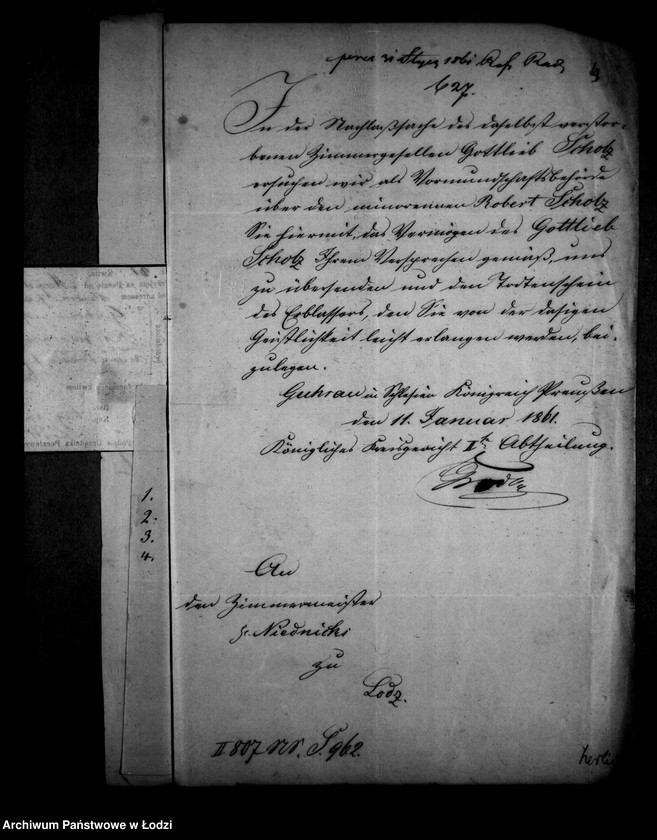 627.
In der Nachlaßsache des daselbst verstor-
benen Zimmergesellen Gottlieb Scholz
ersuchen wir als Vormundschaftsbehörde
über den minorennen Robert Scholz
Sie hiermit, das Vermögen des Gottlieb
Scholz Ihrem Versprechen gemäß, uns
zu übersenden und den Todtenschein
des Erblassers, den Sie von der dasigen
Geistlichkeit leicht erlangen werden, bei-
zulegen.
Guhrau in Schlesien Königreich Preußen
den 11. Januar 1861.
Königliches Kreisgericht II Abtheilung.
An
den Zimmermeister
Niednicki
zu
Lodz.
II 807 S. 962.
1.
2.
3.
4.
Archiwum Państwowe w Łodzi